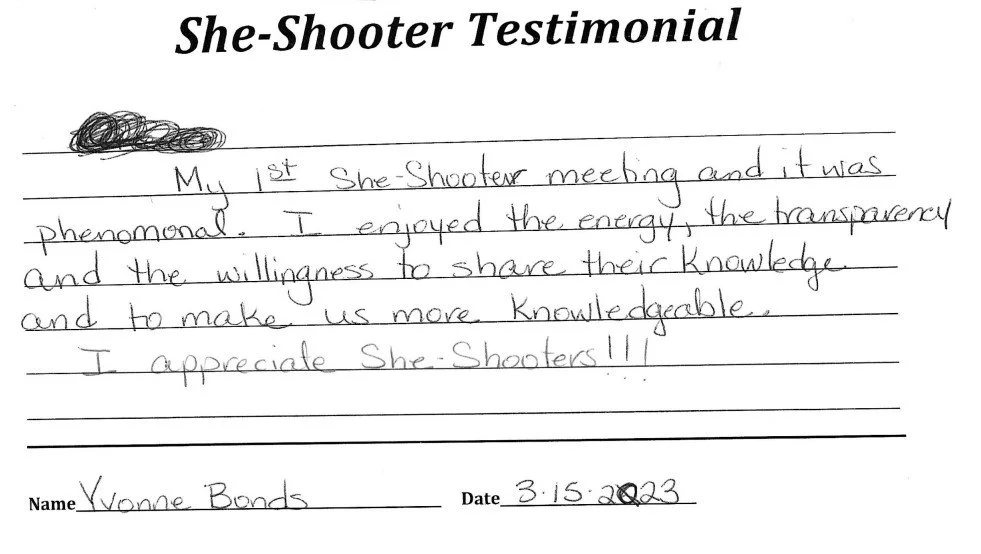 She-Shooter Testimonial
My 1st She-Shooter meeting and it was
phenomonal. I enjoyed the energy, the transparency
and the willingness to share their knowledge
and to make us more knowledgeable.
I appreciate She-Shooters!!!
Name Yvonne Bonds Date 3.15.2023